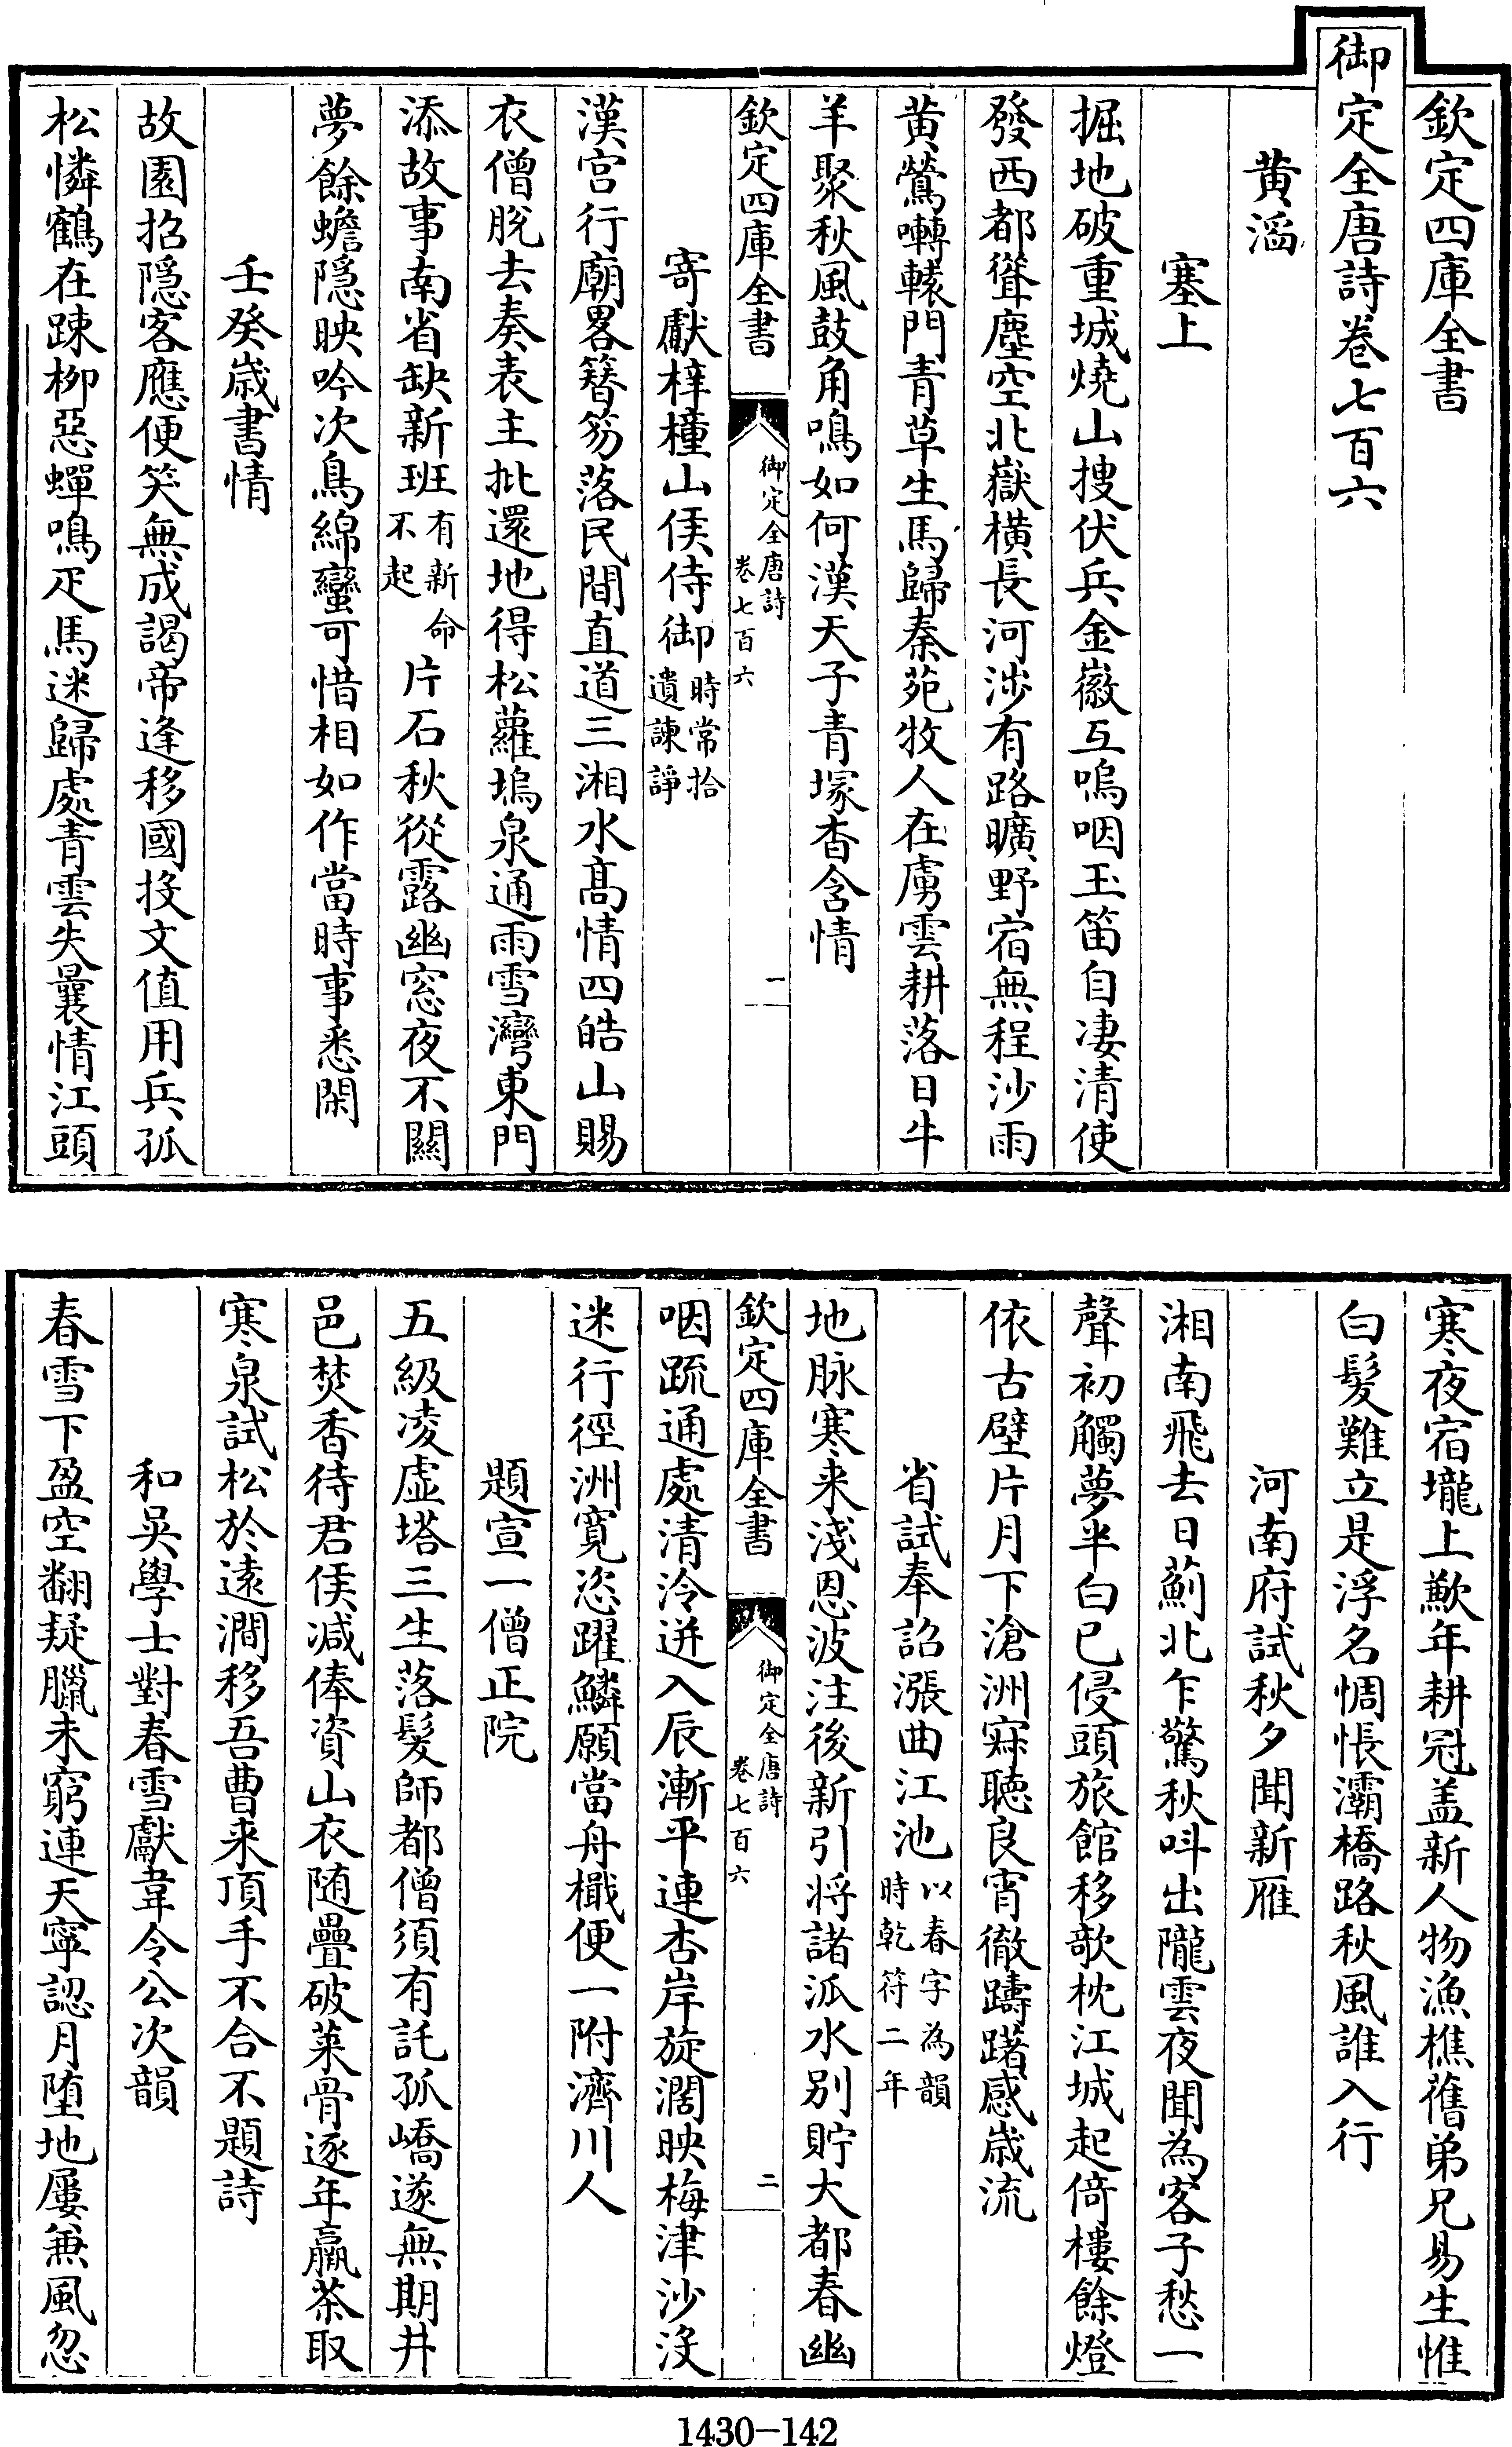 欽定四庫全書
御定全唐詩卷七百六
黄滔
塞上
掘地破重城燒山搜伏兵金徽互嗚咽玉笛自凄清使
發西都聳塵空北嶽橫長河涉有路曠野宿無程沙雨
黄鶯囀轅門青草生馬歸秦苑牧人在虜雲耕落日牛
羊聚秋風鼓角鳴如何漢天子青塚杳含情
欽定四庫全書
御定全唐詩
卷七百六
一
寄獻梓橦山侯侍御時常拾
遺諫諍
漢宫行廟畧簪笏落民間直道三湘水髙情四皓山賜
衣僧脫去奏表主批還地得松蘿塢泉通雨雪灣東門
添故事南省缺新班有新命
不起片石秋從露幽窓夜不關
夢餘蟾隱映吟次鳥綿蠻可惜相如作當時事悉閑
壬癸歲書情
故園招隱客應便笑無成謁帝逢移國投文值用兵孤
松憐鶴在踈柳惡蟬鳴疋馬迷歸處青雲失曩情江頭
寒夜宿壠上歉年耕冠盖新人物漁樵舊弟兄易生惟
白髮難立是浮名惆悵灞橋路秋風誰入行
河南府試秋夕聞新雁
湘南飛去日薊北乍驚秋呌出隴雲夜聞為客子愁一
聲初觸夢半白已侵頭旅館移欹枕江城起倚樓餘燈
依古壁片月下滄洲寂聽良宵徹躊躇感歲流
省試奉詔漲曲江池以春字為韻
時乾符二年
地脉寒来淺恩波注後新引将諸派水别貯大都春幽
欽定四庫全書
御定全唐詩
卷七百六
二
咽疏通處清泠迸入辰漸平連杏岸旋濶映梅津沙沒
迷行徑洲寛恣躍鱗願當舟檝便一附濟川人
題宣一僧正院
五級凌虚塔三生落髮師都僧須有託孤嶠遂無期井
邑焚香待君侯减俸資山衣随疊破萊骨逐年羸茶取
寒泉試松於遠澗移吾曹来頂手不合不題詩
和吳學士對春雪獻韋令公次韻
春雪下盈空翻疑臘未窮連天寧認月墮地屢兼風忽
1430-142